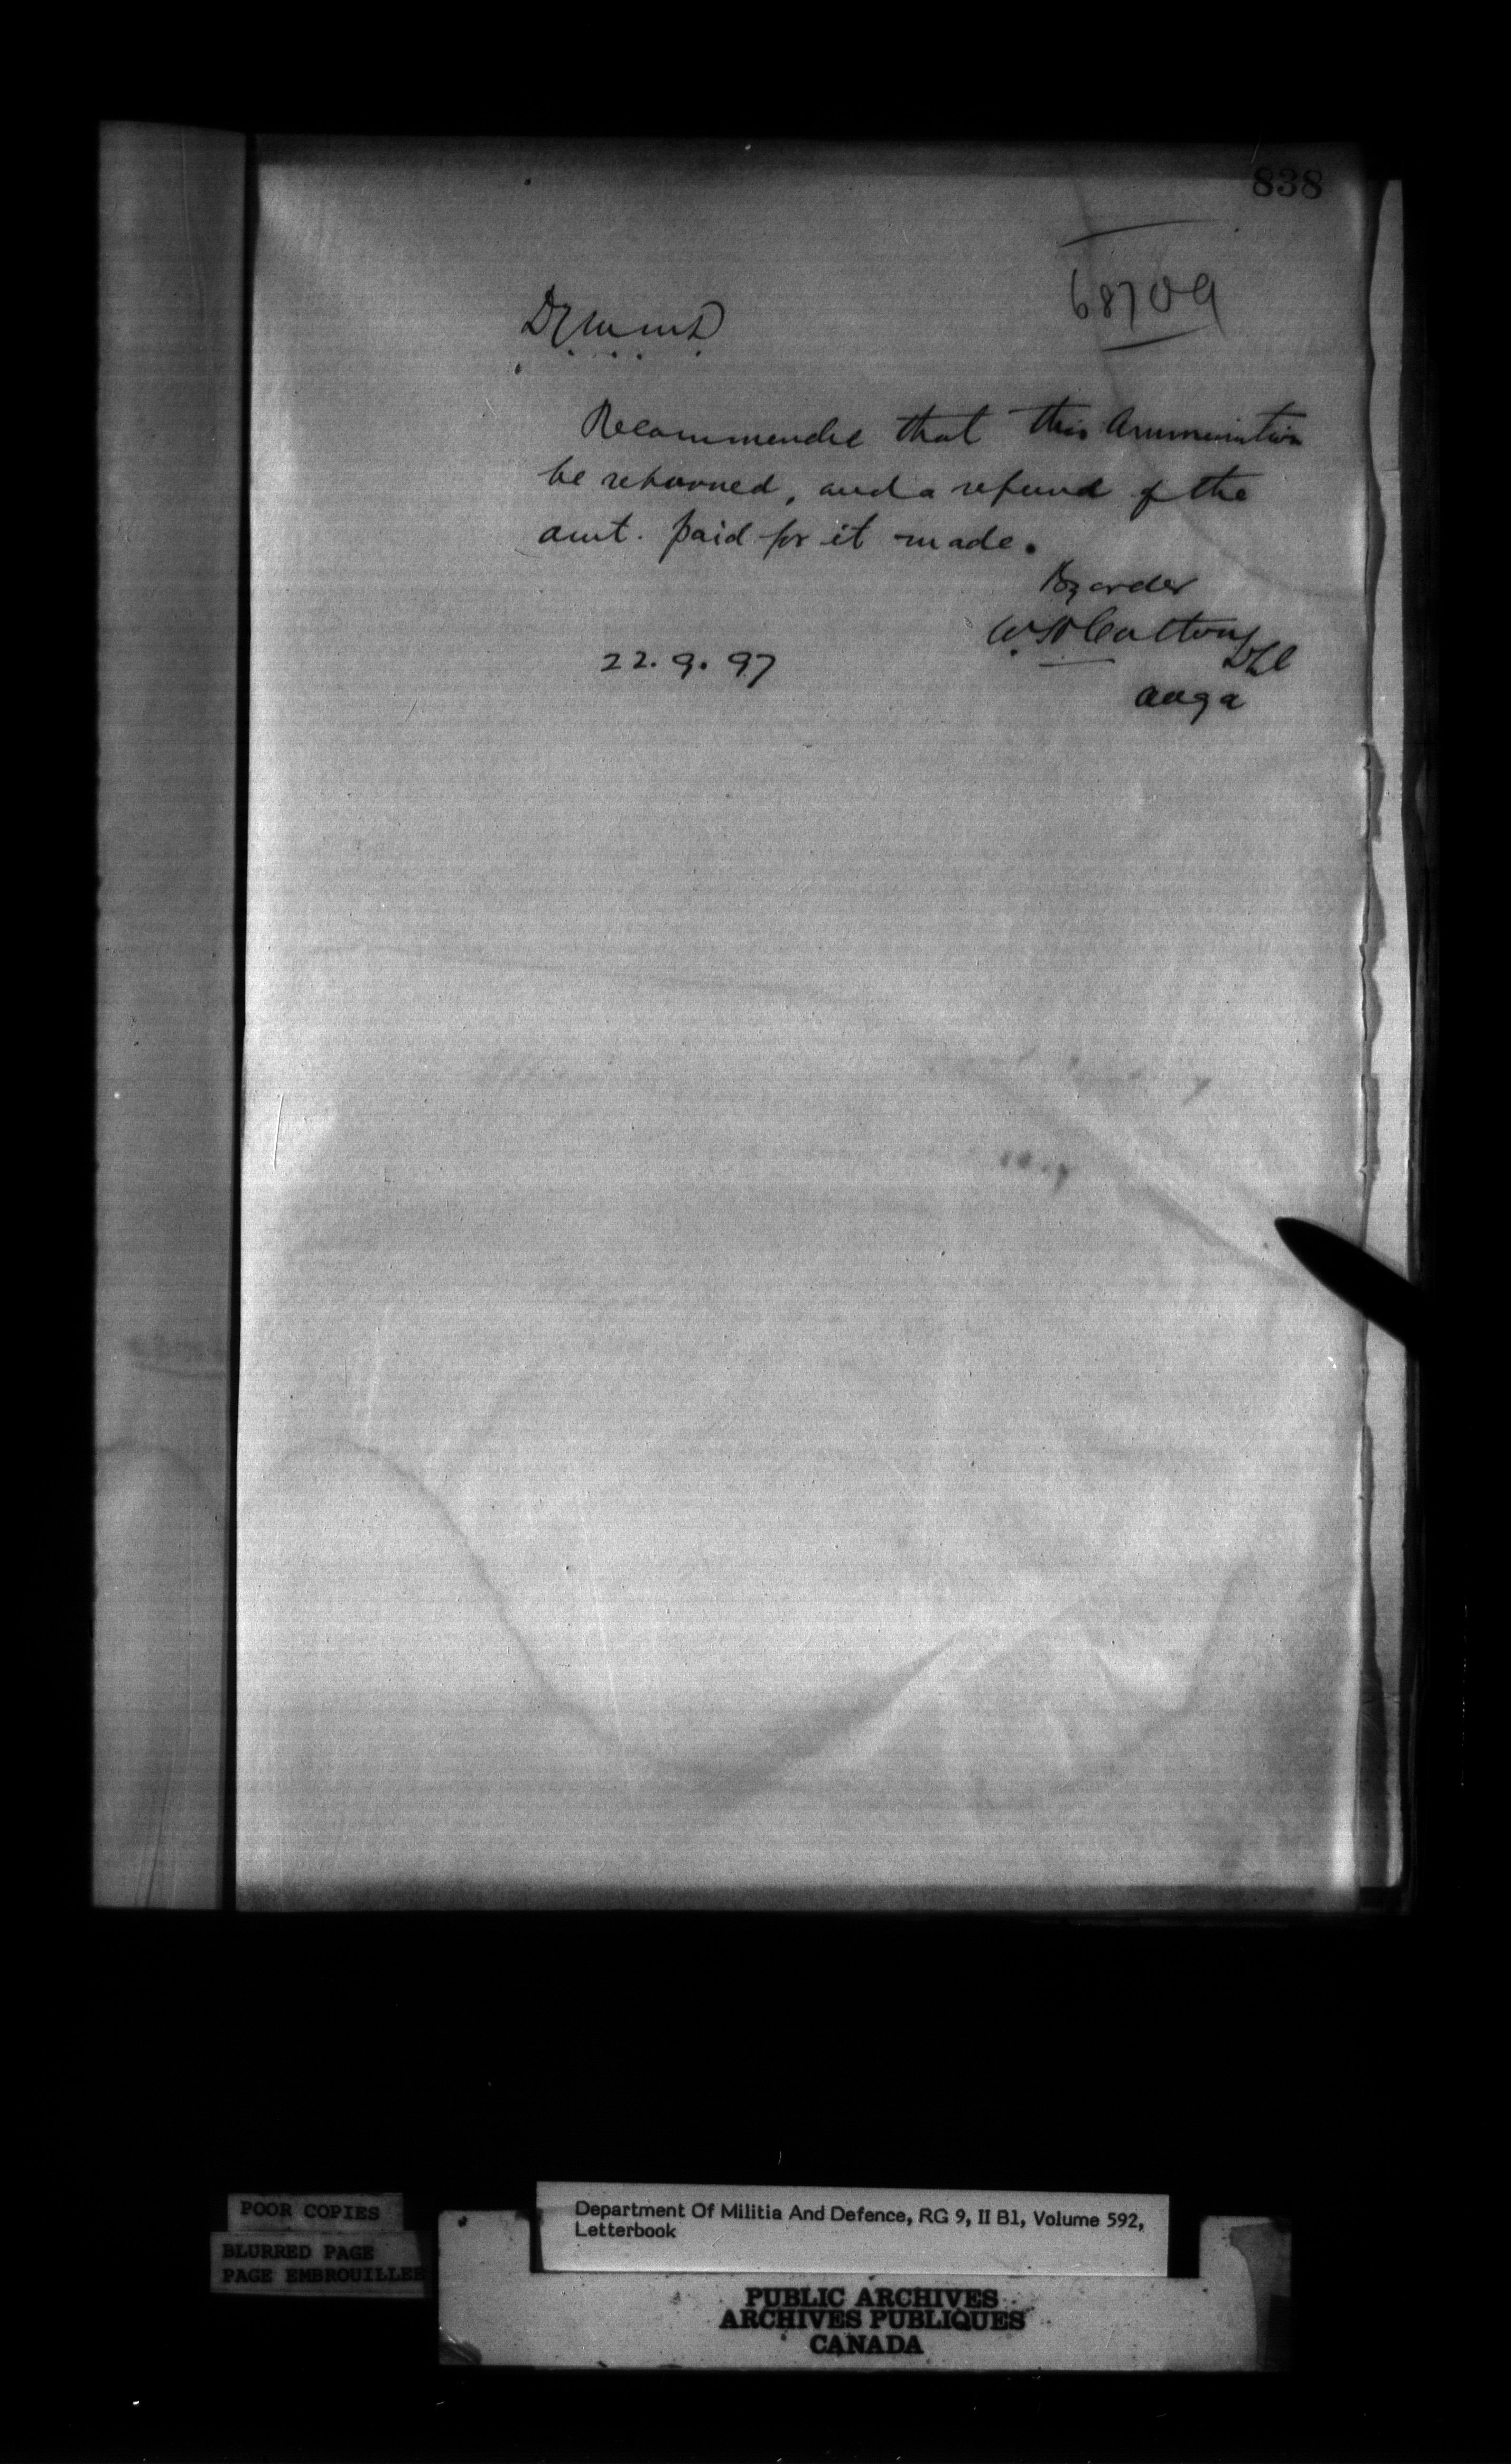 838
68709
Recommended that this Ammunition
be returned, and a refund of the
amt. paid for it made.
By order
22.9.97
aaga
POOR COPIES
BLURRED PAGE
PAGE EMBROUILLEE
Department Of Militia And Defence, RG 9, II B1, Volume 592,
Letterbook
PUBLIC ARCHIVES
ARCHIVES PUBLIQUES
CANADA